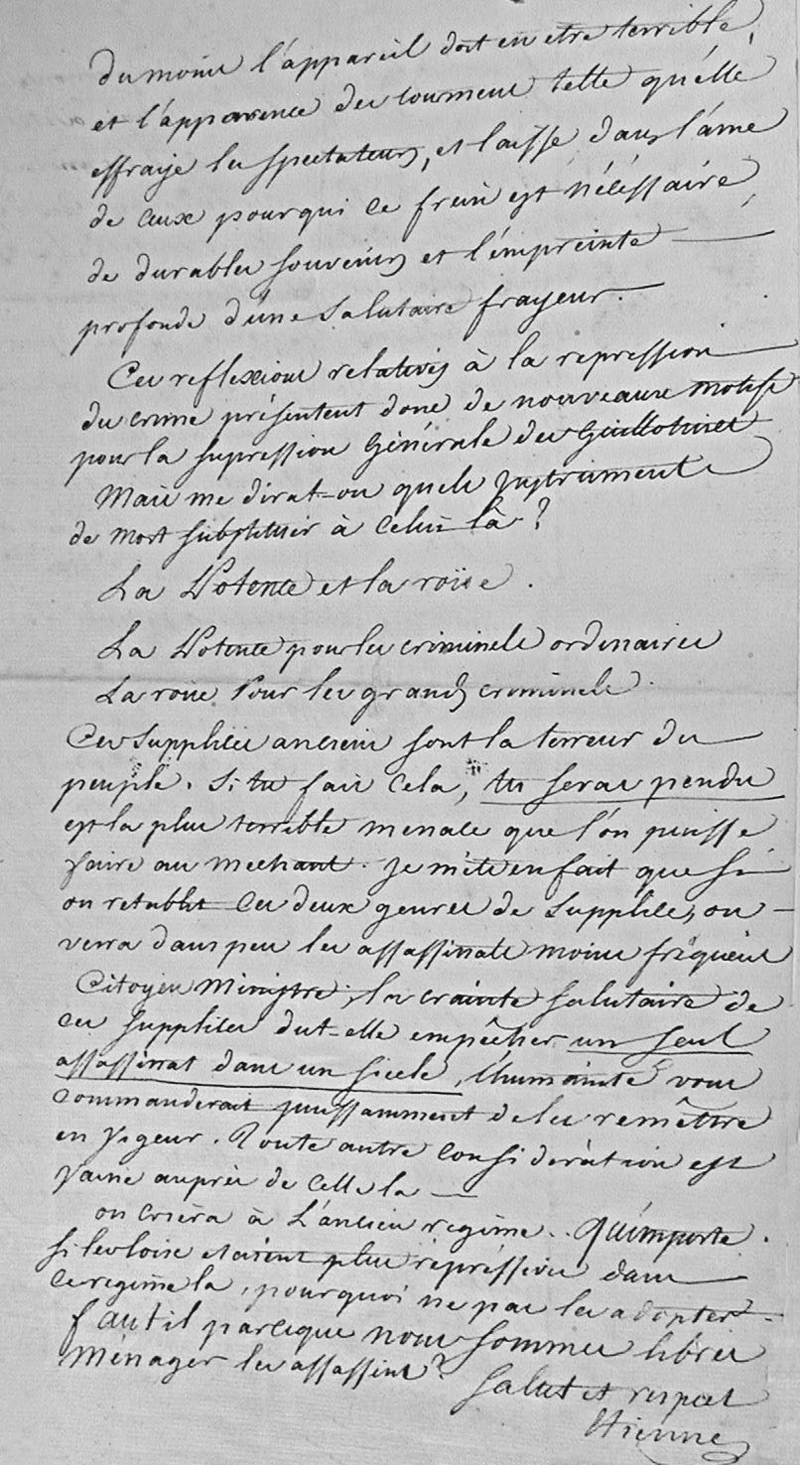 du moins l'appareil doit en etre terrible,
et l'apparence des tourmens telle qu'elle
effraye les spectateurs, et laisse dans l'âme
de ceux pour qui ce frein est nécéssaire,
de durables souvenirs et l'émpreinte —
profonde d'une salutaire frayeur. —
Ces reflexions relatives à la repression —
du crime présentent donc de nouveaux motifs
pour la supression Générale des Guillotines
Mais me dirat-on quels instruments
de mort substituer à celui là ?
La Potence et la roüe .
La Potence pour les criminels ordinaires
La roüe Pour les grands criminels .
Ces supplices anciens sont la terreur du —
peuple . Si tu fais cela, tu seras pendu
est la plus terrible menace que l'on puisse
faire au mechant . Je mets en fait que si —
on retablit ces deux genres de supplices, on —
verra dans peu les assassinats moins fréquens
Citoyen Ministre, la crainte salutaire de
ces supplices dut-elle empêcher un seul
assassinat dans un siecle, l'humanité vous
commanderait puissamment de les remêttre
en vigeur . Toute autre considération est
vaine auprès de celle la —
on criera à L'ancien regime . . Qu'importe .
si les loix etaient plus répréssives dans —
ce regime la, pourquoi ne pas les adopter .
faut il parceque nous sommes libres
Ménager les assassins ?
Salut et respect
Etienne